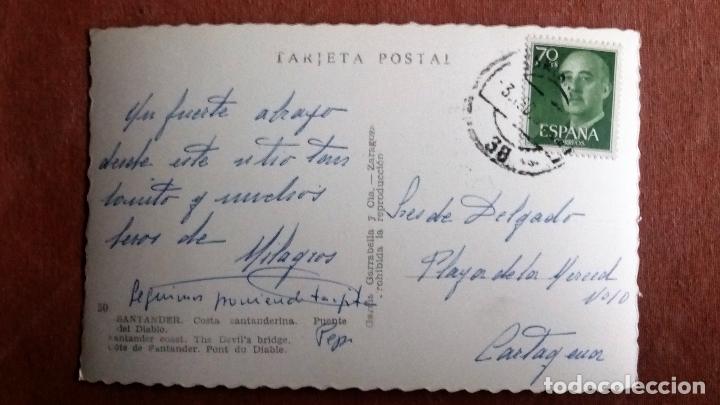 TARJETA POSTAL
70
CTS
ESPAÑA
CORREOS
Un fuerte abrazo
desde este sitio tan
bonito y muchos
besos de
Milagros
Seguimos poniendo tarjetas
Pepi
Sres de Delgado
Plaza de la Merced
Nº 10
Cartagena
García Garrabella y Cía.—Zaragoza
Prohibida la reproducción
50
SANTANDER. Costa santanderina. Puente
del Diablo.
Santander coast. The Devil's bridge.
Côte de Santander. Pont du Diable.
todocoleccion.net